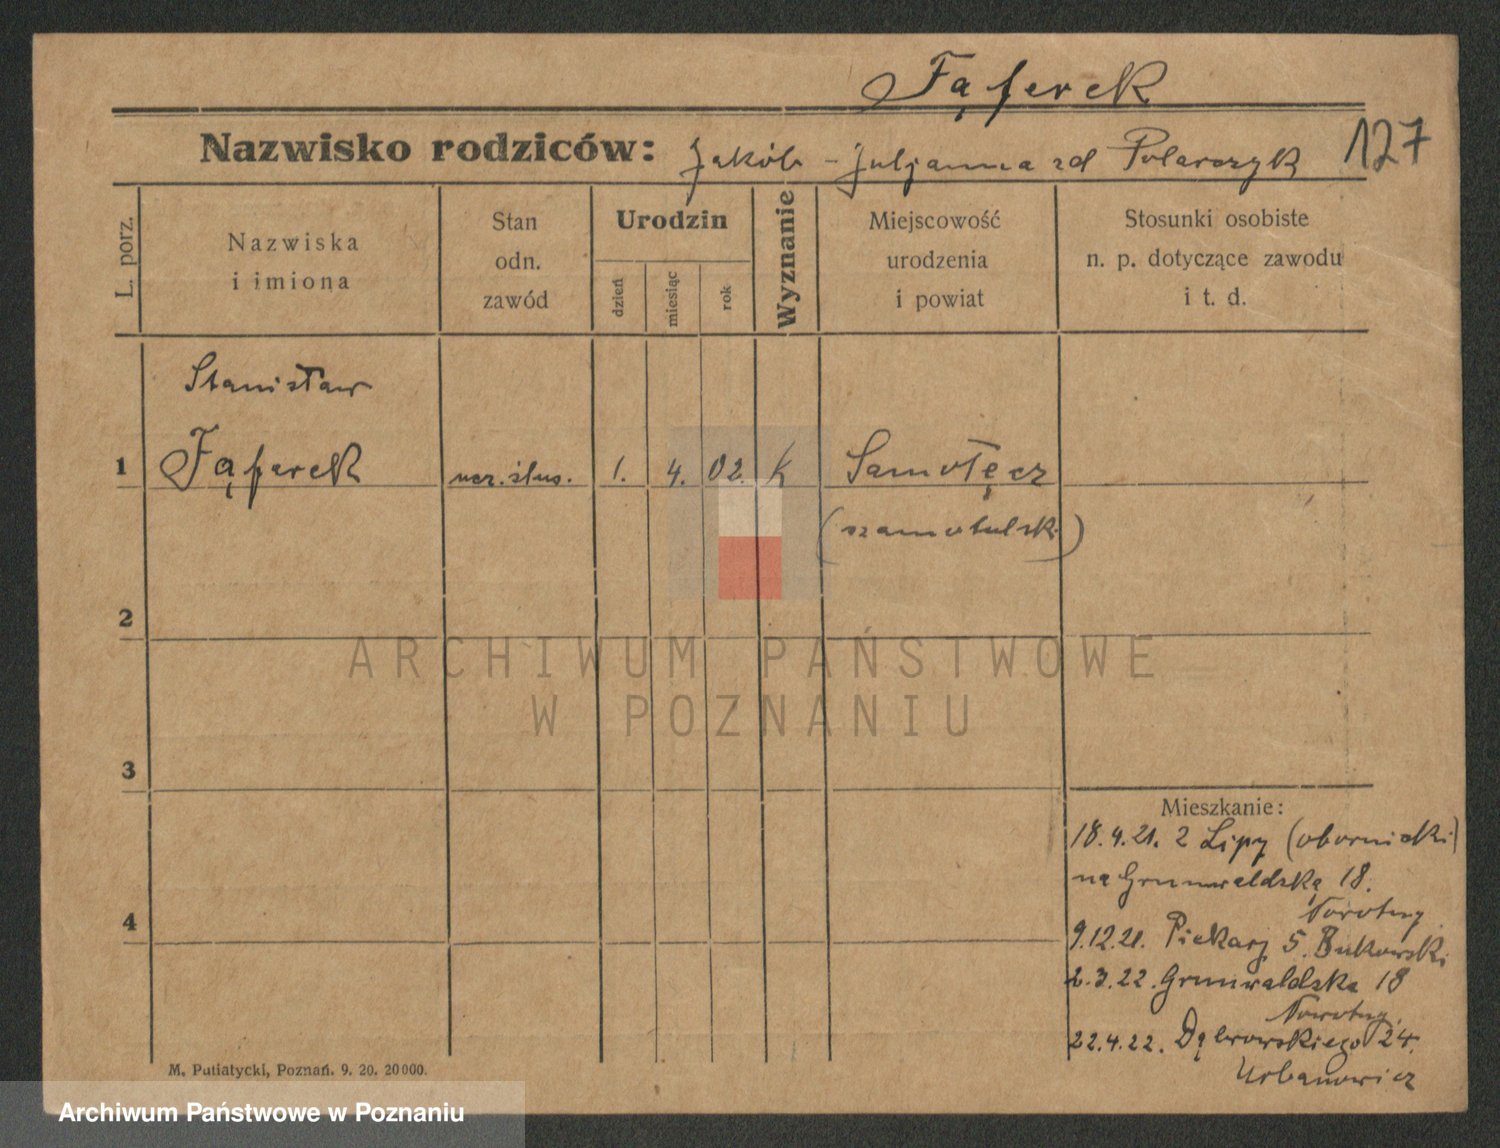 Fąferek
Nazwisko rodziców: Jakób - Juljanna zd Polarczyk 127
L. porz.
Nazwiska
i imiona
Stan
odn.
zawód
Urodzin
dzień
miesiąc
rok
Wyznanie
Miejscowość
urodzenia
i powiat
Stosunki osobiste
n. p. dotyczące zawodu
i t. d.
Stanisław
1 Fąferek ucz. ślus. 1. 4. 02. K Samołęcz
(szamotulski)
2
ARCHIWUM PAŃSTWOWE
W POZNANIU
3
Mieszkanie:
18.4.21. z Lipy (obornicki)
na Grunwaldską 18.
Nowotny
4
9.12.21. Piekary 5. Bukowski
2.3.22. Grunwaldska 18
Nowotny.
22.4.22. Dąbrowskiego 24.
Urbanowicz
M. Putiatycki, Poznań. 9. 20. 20000.
Archiwum Państwowe w Poznaniu